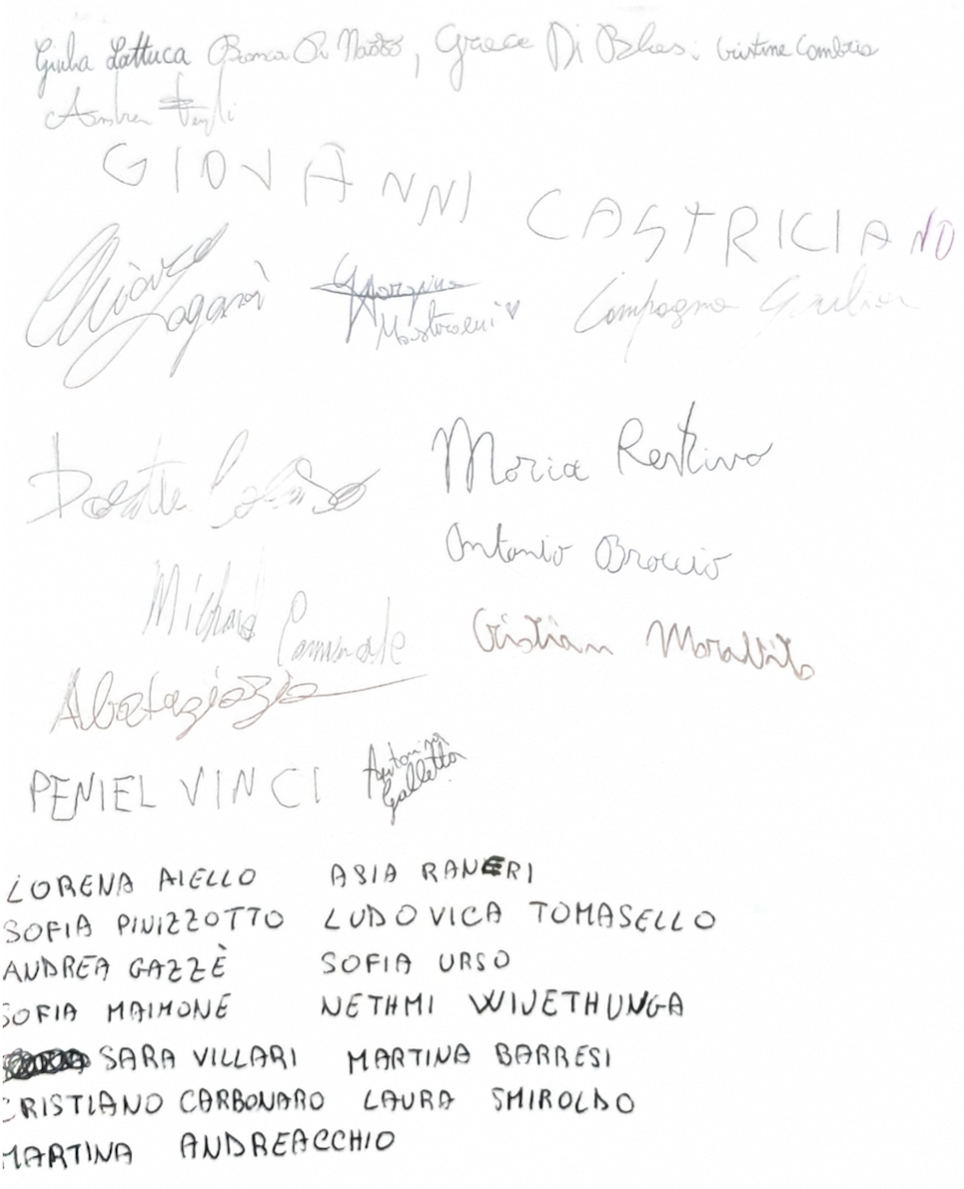 Giulia Lattuca Bianca Di Grace Di Cristine Cambria
Ambra
GIOVANNI CASTRICIANO
Chiara Laganà
Mastroeni ♥
Compagna Giulia
Maria Restivo
Antonio Broccio
Cristian Morabito
PENIEL VINCI
Antonina
Galletta
LORENA AIELLO ASIA RANERI
SOFIA PINIZZOTTO LUDOVICA TOMASELLO
ANDREA GAZZÈ SOFIA URSO
SOFIA MAIMONE NETHMI WIJETHUNGA
SARA VILLARI MARTINA BARRESI
CRISTIANO CARBONARO LAURA SMIROLDO
MARTINA ANDREACCHIO